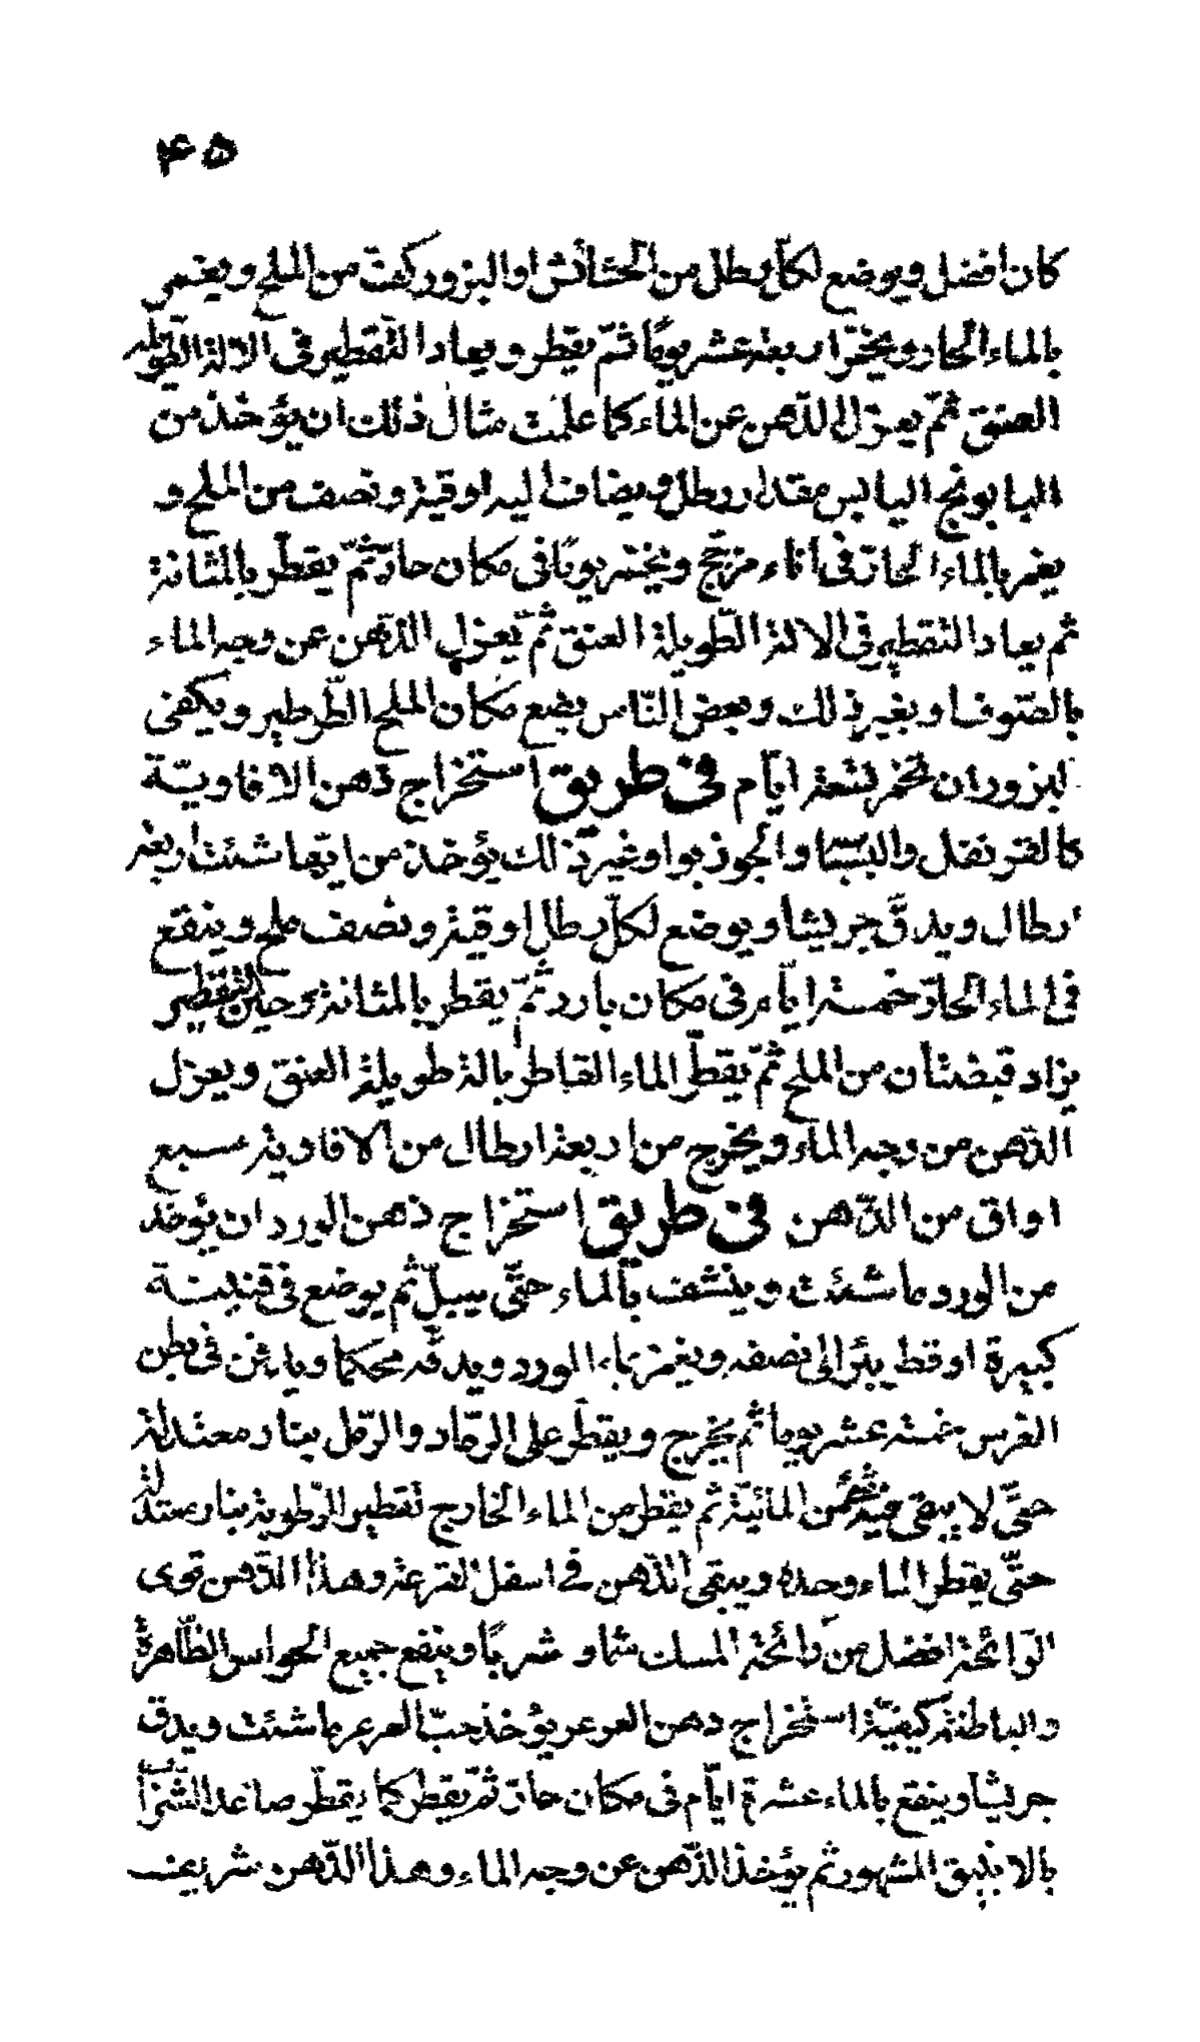 ۴۵
كان افضل ويوضع لكلّ رطل من الحشائش او البزور كفّ من الملح ويغمر
بالماء الحار ويخمّر اربعة عشر يومًا ثمّ يقطر ويعاد التقطير فى الآلة الطّويلة
العنق ثمّ يعزل الدّهن عن الماء كما علمت مثال ذلك ان يؤخذ من
البابونج اليابس مقدار رطل ويضاف اليه اوقية ونصف من الملح و
يغمر بالماء الحارّ فى اناء مزجّج ويخمّر يومًا فى مكان حارّ ثمّ يقطّر بالمثانة
ثم يعاد التقطير فى الالة الطّويلة العنق ثمّ يعزل الدّهن عن وجه الماء
بالصّوف او بغير ذلك وبعض النّاس يضع مكان الملح الطّرطير ويكفى
لبزور ان تخمر تسعة ايّام فى طريق استخراج دهن الافاويّة
كالقرنفل والبسبّا والجوذبوا وغير ذلك يؤخذ من ايّها شئت اربعة
ارطال ويدقّ جريشا ويوضع لكلّ رطل اوقية ونصف ملح وينقع
فى الماء الحارّ خمسة ايّام فى مكان بارد ثمّ يقطر بالمثانة وحين التقطير
يزاد قبضتان من الملح ثمّ يقطّر الماء القاطر بالة طويلة العنق ويعزل
الدّهن من وجه الماء ويخرج من اربعة ارطال من الافاوية سبع
اواق من الدّهن فى طريق استخراج دهن الورد ان يؤخذ
من الورد ما شئت وينشف بالماء حتّى يبلّ ثم يوضع فى قنينة
كبيرة او قطرميز الى نصفه ويغمر بماء الورد ويدقّه محكما ويدفن فى بطن
الفرس خمسة عشر يوما ثم يخرج ويقطر على الرّماد والرّمل بنار معتدلة
حتّى لا يبقى فيه شئ من المائيّة ثم يقطر من الماء الخارج تقطير الرّطوبة بنار معتدلة
حتّى يقطر الماء وحده ويبقى الدّهن فى اسفل القرعة وهذا الدّهن قوى
الرّائحة افضل من رائحة المسك شمّا و شربًا وينفع جميع الحواس الظّاهرة
والباطنة كيفيّة استخراج دهن العرعر يؤخذ حبّ العرعر ما شئت ويدق
جريشا وينقع بالماء عشرة ايّام فى مكان حارّ ثمّ يقطر كما يقطّر صاعد الشّراب
بالانبيق المشهور ثم يؤخذ الدّهن عن وجه الماء وهذا الدّهن شريف